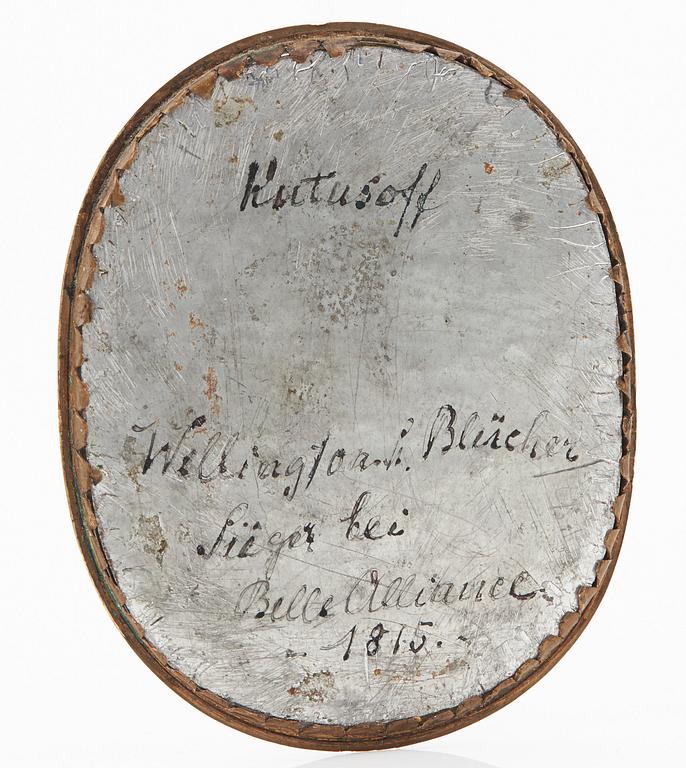 Kutusoff
Wellington u. Blücher
Sieger bei
Belle Alliance.
- 1815. -